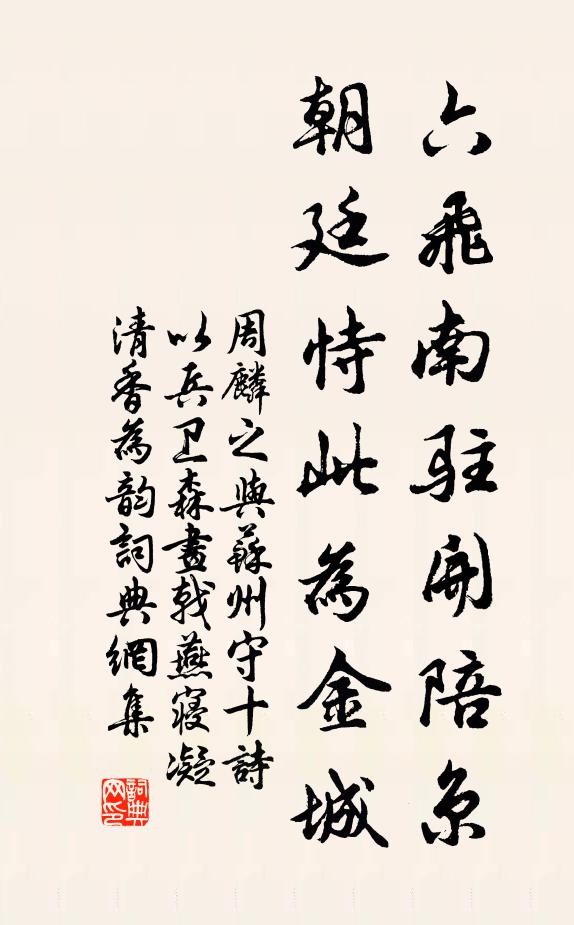 六飛南駐開陪京
朝廷恃此為金城
周麟之與蘇州守十詩
以兵卫森畫戟燕寢凝
清香為韵詞典網集
詞典
网印